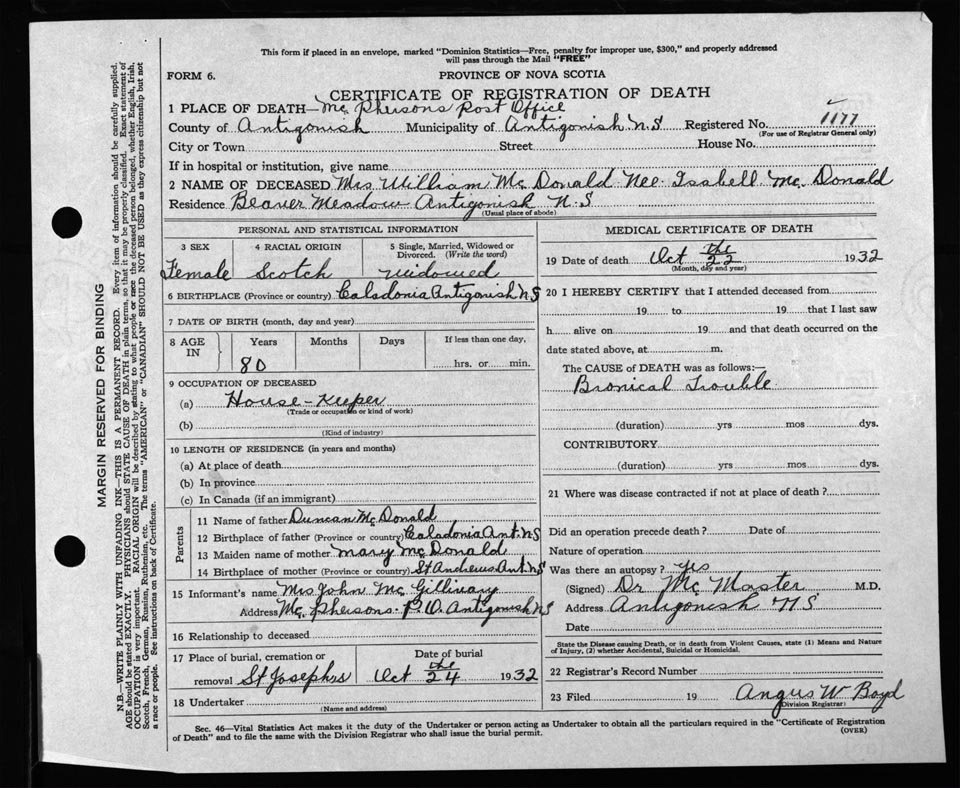 This form if placed in an envelope, marked "Dominion Statistics—Free, penalty for improper use, $300," and properly addressed
will pass through the Mail "FREE"
FORM 6.
PROVINCE OF NOVA SCOTIA
CERTIFICATE OF REGISTRATION OF DEATH
1 PLACE OF DEATH—Mc Phersons Post Office
County of Antigonish Municipality of Antigonish N.S Registered No. 1177
(For use of Registrar General only)
City or Town Street House No.
If in hospital or institution, give name
2 NAME OF DECEASED Mrs William Mc Donald Nee Isabell Mc Donald
Residence Beaver Meadow Antigonish N.S
(Usual place of abode)
PERSONAL AND STATISTICAL INFORMATION
3 SEX 4 RACIAL ORIGIN 5 Single, Married, Widowed or
Divorced. (Write the word)
Female Scotch widowed
6 BIRTHPLACE (Province or country) Caladonia Antigonish NS
7 DATE OF BIRTH (month, day and year)
8 AGE IN Years Months Days If less than one day,
80 hrs. or min.
9 OCCUPATION OF DECEASED
(a) House-Keeper
(Trade or occupation or kind of work)
(b)
(Kind of industry)
10 LENGTH OF RESIDENCE (in years and months)
(a) At place of death
(b) In province
(c) In Canada (if an immigrant)
Parents
11 Name of father Duncan Mc Donald
12 Birthplace of father (Province or country) Caladonia Ant. NS
13 Maiden name of mother Mary Mc Donald
14 Birthplace of mother (Province or country) St Andrews Ant. NS
15 Informant's name Mrs John Mc Gillivary
Address Mc Phersons P.O. Antigonish NS
16 Relationship to deceased
17 Place of burial, cremation or Date of burial
removal St Josephs Oct the 24 1932
18 Undertaker
(Name and address)
MEDICAL CERTIFICATE OF DEATH
19 Date of death Oct the 22 1932
(Month, day and year)
20 I HEREBY CERTIFY that I attended deceased from
19 to 19 that I last saw
h alive on 19 and that death occurred on the
date stated above, at m.
The CAUSE of DEATH was as follows:—
Bronical Trouble
(duration) yrs mos dys.
CONTRIBUTORY
(duration) yrs mos dys.
21 Where was disease contracted if not at place of death?
Did an operation precede death? Date of
Nature of operation
Was there an autopsy? yes
(Signed) Dr Mc Master M.D.
Address Antigonish NS
Date
State the Disease causing Death, or in death from Violent Causes, state (1) Means and Nature
of Injury, (2) whether Accidental, Suicidal or Homicidal.
22 Registrar's Record Number
23 Filed 19 Angus W Boyd
(Division Registrar)
Sec. 46—Vital Statistics Act makes it the duty of the Undertaker or person acting as Undertaker to obtain all the particulars required in the "Certificate of Registration
of Death" and to file the same with the Division Registrar who shall issue the burial permit.
(OVER)
MARGIN RESERVED FOR BINDING
N.B.—WRITE PLAINLY WITH UNFADING INK—THIS IS A PERMANENT RECORD. Every item of information should be carefully supplied.
AGE should be stated EXACTLY. PHYSICIANS should STATE CAUSE OF DEATH in plain terms, so that it may be properly classified. Exact statement of
OCCUPATION is very important. RACIAL ORIGIN will be described by stating to what people or race the deceased person belonged, whether English, Irish,
Scotch, French, German, Russian, Ruthenian, etc. The terms "AMERICAN" or "CANADIAN" SHOULD NOT BE USED as they express citizenship but not
a race or people. See instructions on back of Certificate.